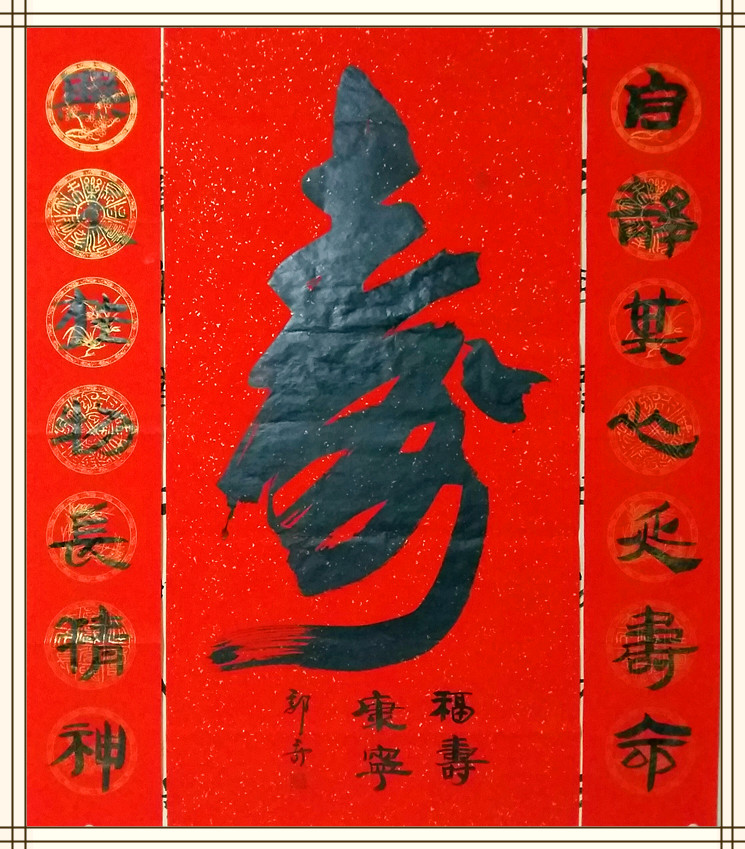 自靜其心延壽命
壽
福壽
康寧
郭奇
無求於物長精神